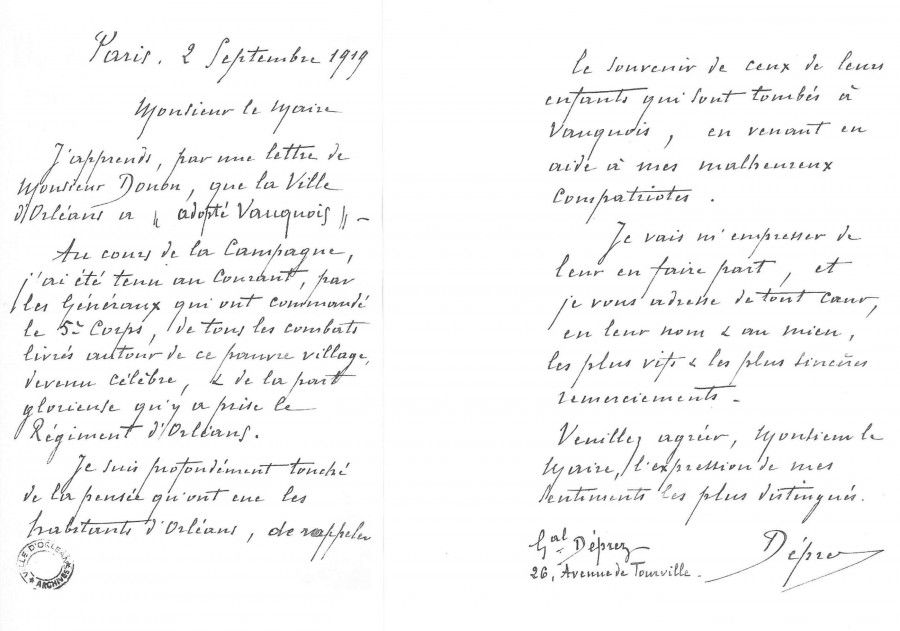 Paris. 2 Septembre 1919
Monsieur le Maire
J'apprends, par une lettre de
Monsieur Donon, que la Ville
d'Orléans a « adopté Vauquois » -
Au cours de la Campagne,
j'ai été tenu au Courant, par
les Généraux qui ont commandé
le 5e Corps, de tous les combats
livrés autour de ce pauvre village,
devenu célèbre, & de la part
glorieuse qu'y a prise le
Régiment d'Orléans.
Je suis profondément touché
de la pensée qu'ont eue les
habitants d'Orléans, de rappeler
VILLE D'ORLEANS
* ARCHIVES *
le souvenir de ceux de leurs
enfants qui sont tombés à
Vauquois, en venant en
aide à mes malheureux
Compatriotes.
Je vais m'empresser de
leur en faire part, et
je vous adresse de tout cœur,
en leur nom & au mien,
les plus vifs & les plus sincères
remerciements -
Veuillez agréer, Monsieur le
Maire, l'expression de mes
Sentiments les plus distingués.
Gal Déprez
26, Avenue de Tourville.
Déprez